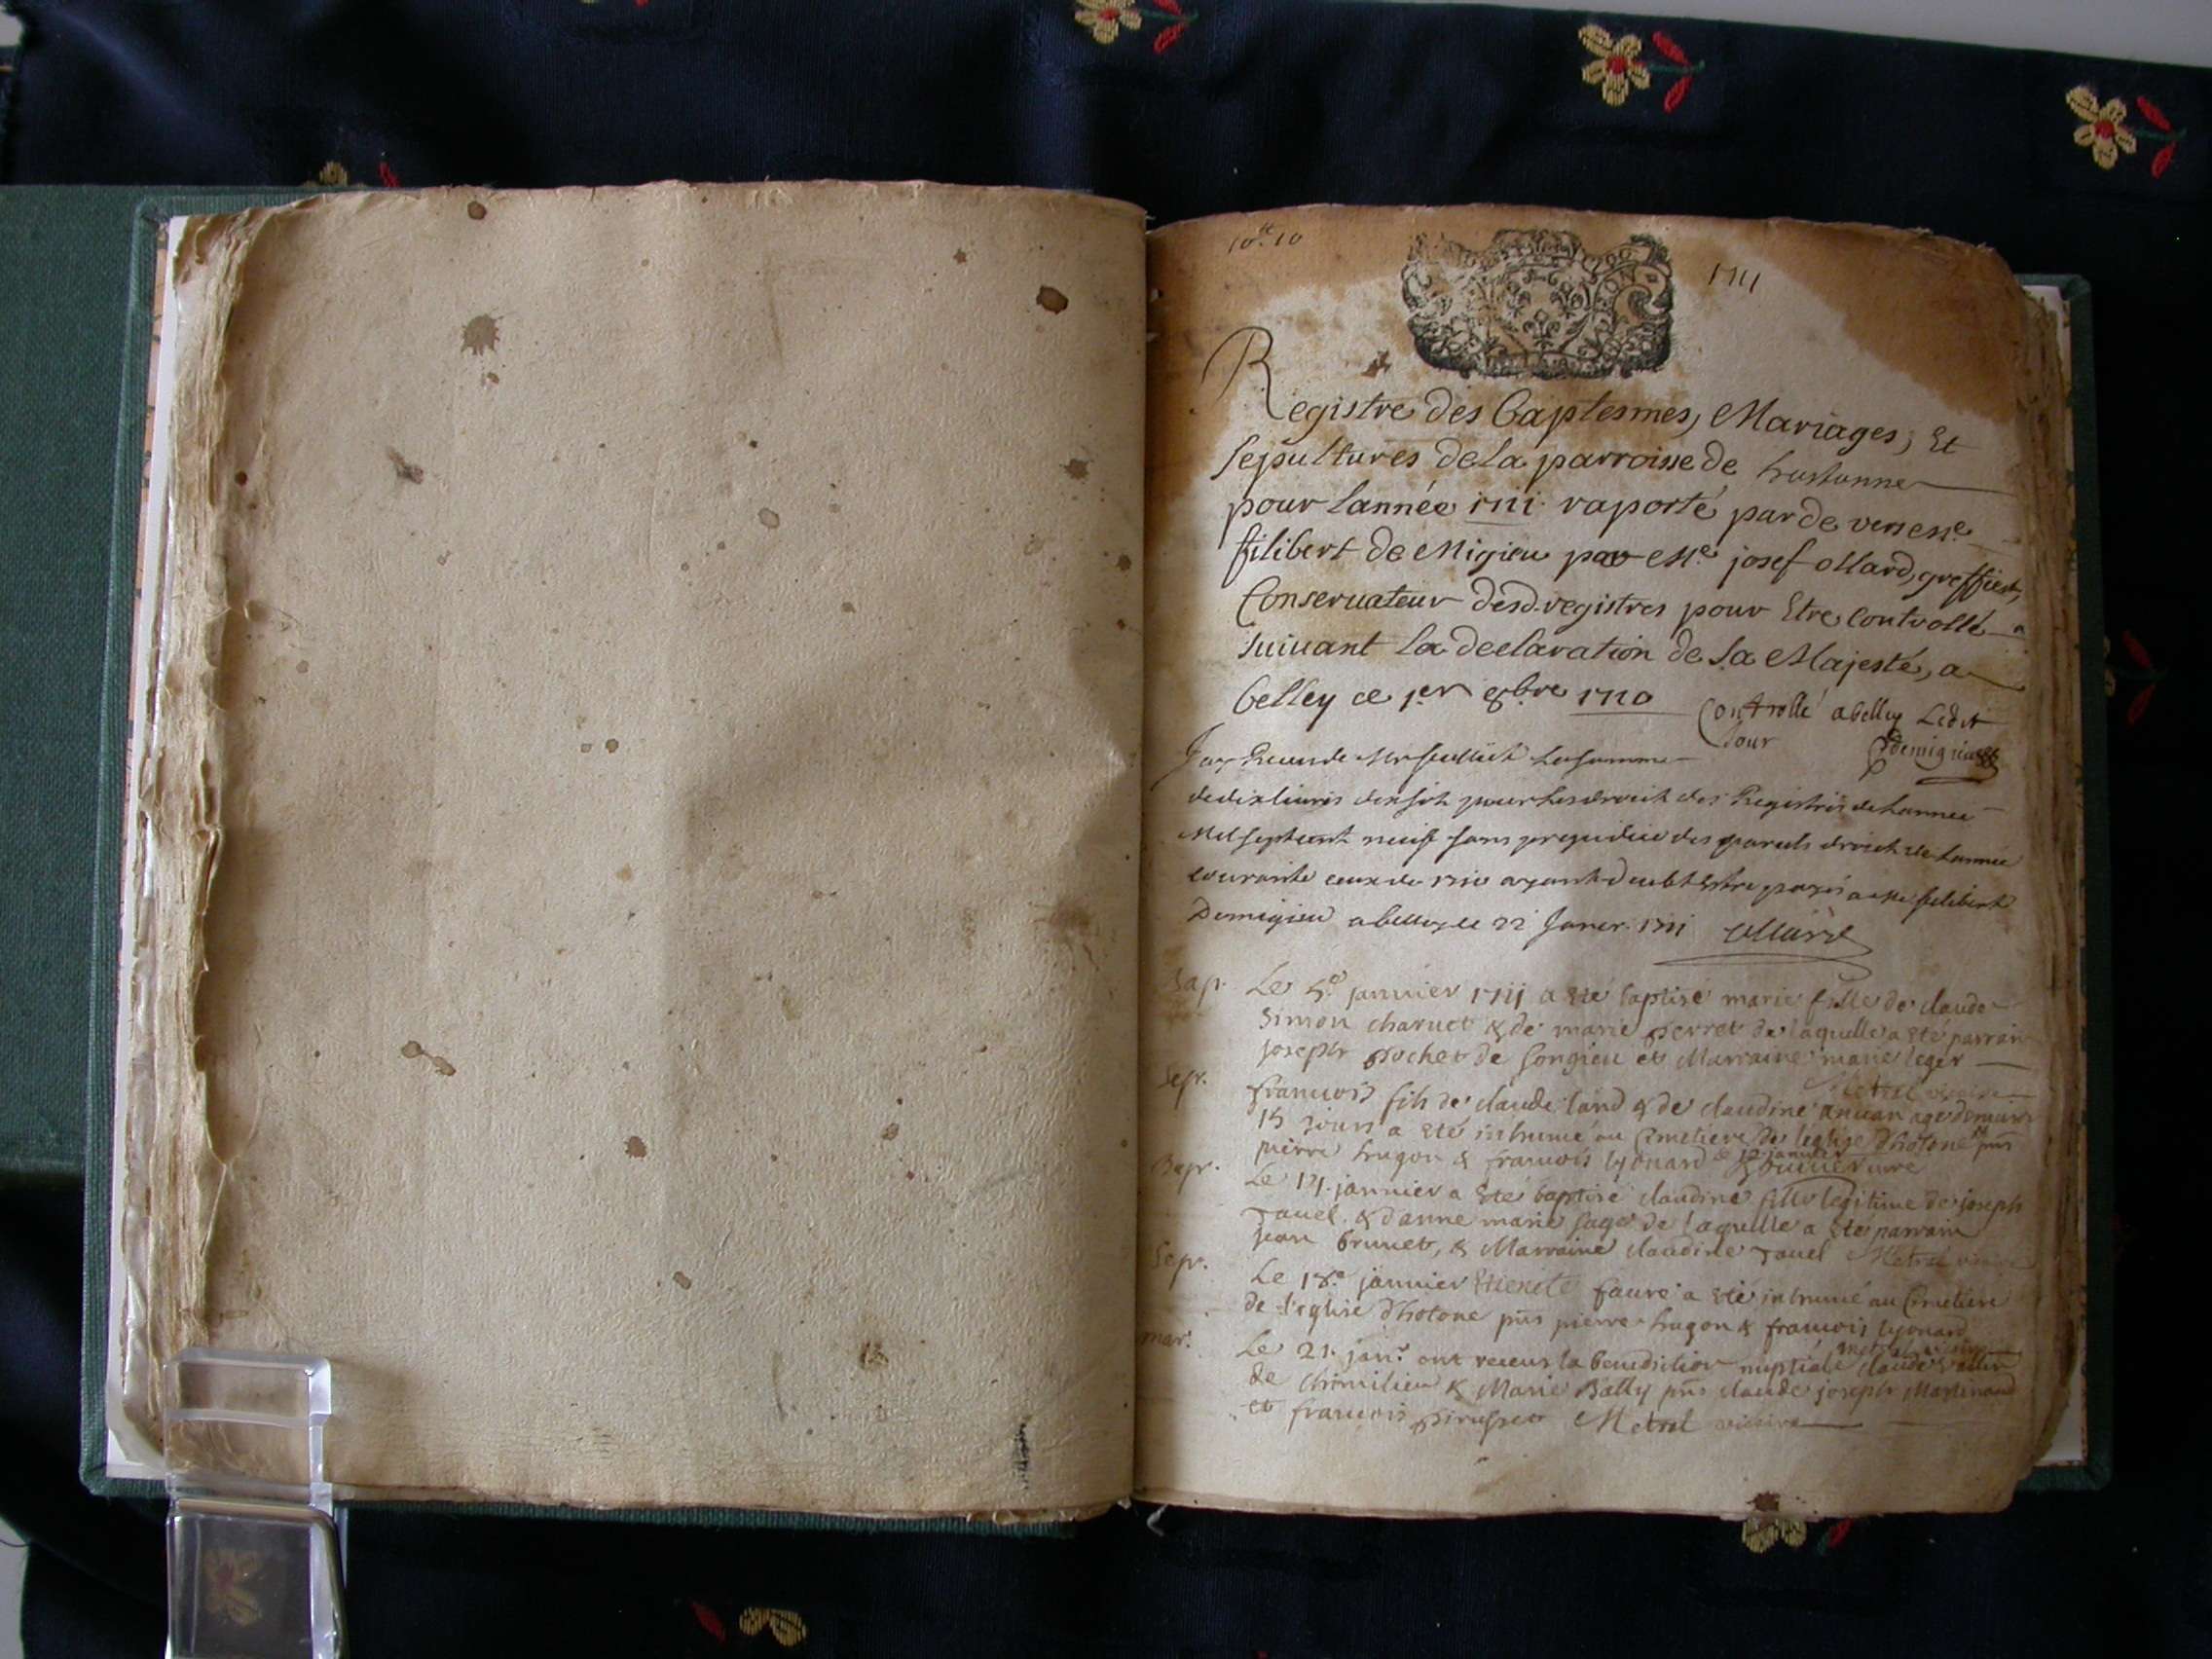 10lt 10
1711
Registre des baptesmes, Mariages, Et
sepultures de la parroisse de hustonne
pour lannée 1711 raporté par de
filibert de Migieu par Me josef ollard, greffier,
Conservateur desd. registres pour Etre Controllé
suivant la declaration de Sa Majesté, a
belley ce 1er 8bre 1710
Controllé a belley Ledit
Jour Demigieu
Jay Receu de Mr La somme
de dix livres dix sols pour les droits des Registres de Lannee
Mil sept cent neuf sans prejudice des droits de Lannée
courante ceux de 1710 ayant payés a Me filibert
Demigieu a belley le 22 Janvr. 1711 Ollard
Bap. Le 5e janvier 1711 a eté baptisé marie fille de claude
Simon charvet & de marie perret de laquelle a eté parrain
joseph pochet de songieu et Marraine marie leger
Metral vicaire
Sep. francois fils de claude & de claudine age denviron
15 jours a eté inhumé au Cimetiere de leglise dhotone pñs
pierre hugon & francois lyonard le 12 janvier curé
Bap. Le 14. janvier a eté baptisé claudine fille legitime de joseph
Tavel & danne marie sage de laquelle a eté parrain
jean brunet, & Marraine claudine Tavel Metral vicaire
Sep. Le 18.e janvier faure a eté inhumé au Cimetiere
de leglise dhotone pñs pierre hugon & francois lyonard
Metral vicaire
mar. Le 21. janr. ont receus la benediction nuptiale claude
de chimilieu & Marie Bally pñs claude joseph Martinand
et francois Metral vicaire